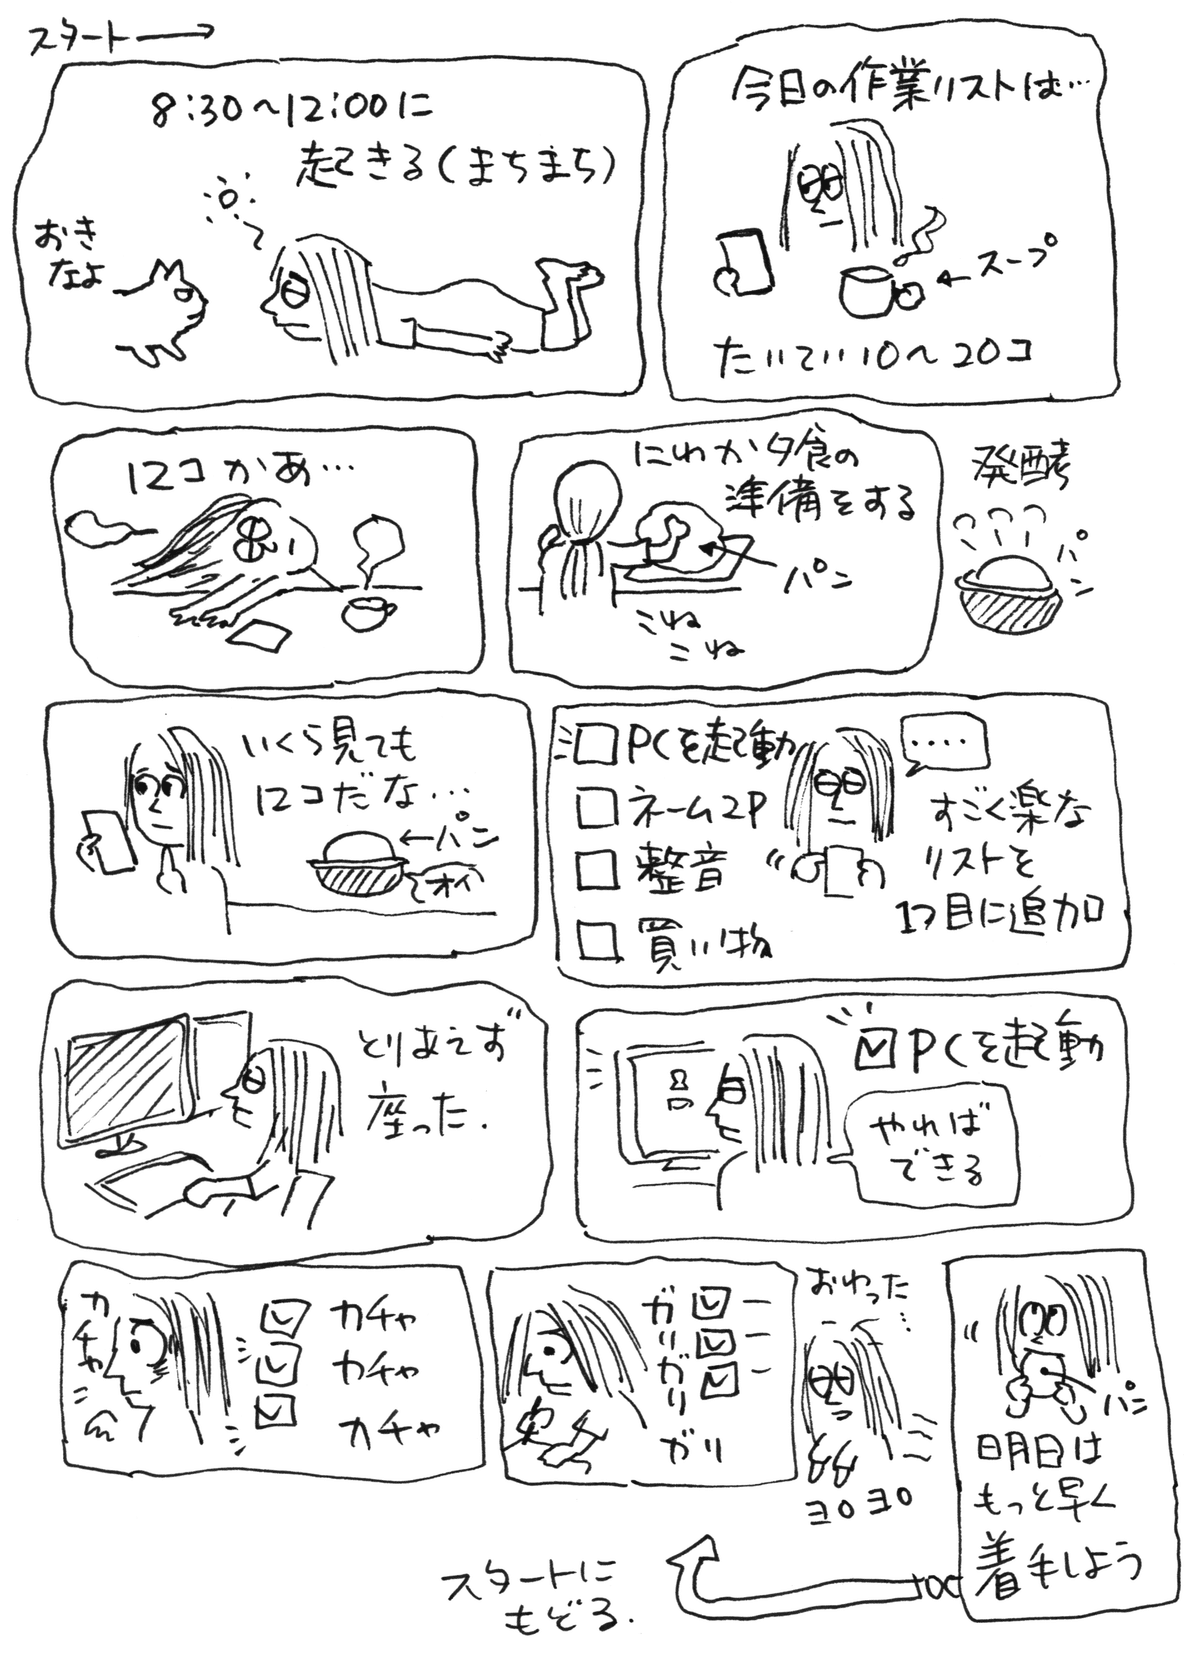 スタート
8:30〜12:00に
起きる(まちまち)
おき
なよ
今日の作業リストは…
スープ
たいてい10〜20コ
12コかあ…
にわか夕食の
準備をする
パン
こね
こね
発酵
パン
いくら見ても
12コだな…
パン
オイ
PCを起動
ネーム2P
整音
買い物
....
すごく楽な
リストを
1つ目に追加
とりあえず
座った.
PCを起動
やれば
できる
カチャ
カチャ
カチャ
カチャ
ガリガリ
ガリ
おわった…
ヨロヨロ
パン
明日は
もっと早く
着手しよう
スタートに
もどる.